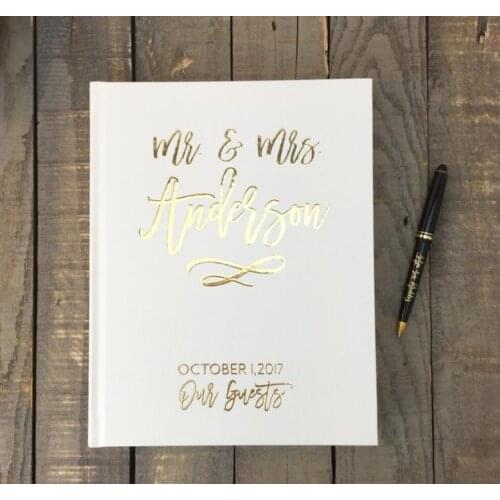 mr. & mrs.
Anderson
OCTOBER 1, 2017
Our Guests